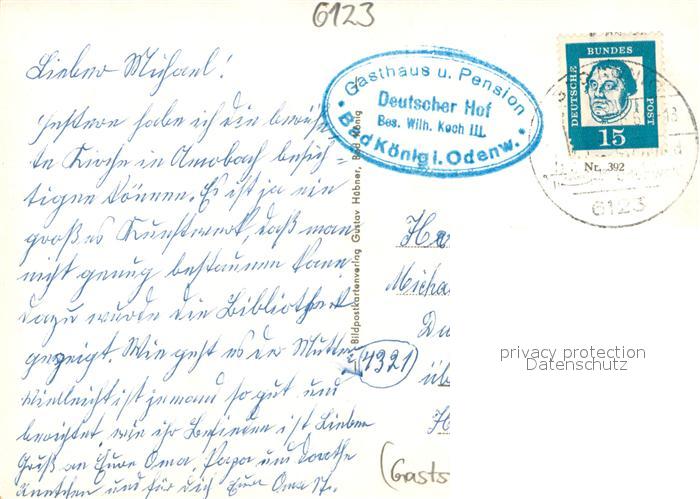 6123
Lieber Michael!
Gestern habe ich die berühm
te Kirche in Amorbach besich=
tigen können. Es ist ja ein
großes Kunstwerk, daß man
nicht genug bestaunen kann
dazu wurde die Bibliothek
gezeigt. Wie geht es der Mutter
vielleicht ist jemand so gut und
berichtet, wie ihr Befinden ist Lieben
Gruß an Eure Oma, Papa und Dorothe
Ännchen und für Dich Eure Oma St.
Gasthaus u. Pension
Deutscher Hof
Bes. Wilh. Koch III.
Bad König i. Odenw.
Bildpostkartenverlag Gustav Hübner, Bad König
DEUTSCHE
BUNDES
POST
15
Nr. 392
6123
He
Micha
Du
4321
üb
H
(Gasts
privacy protection
Datenschutz